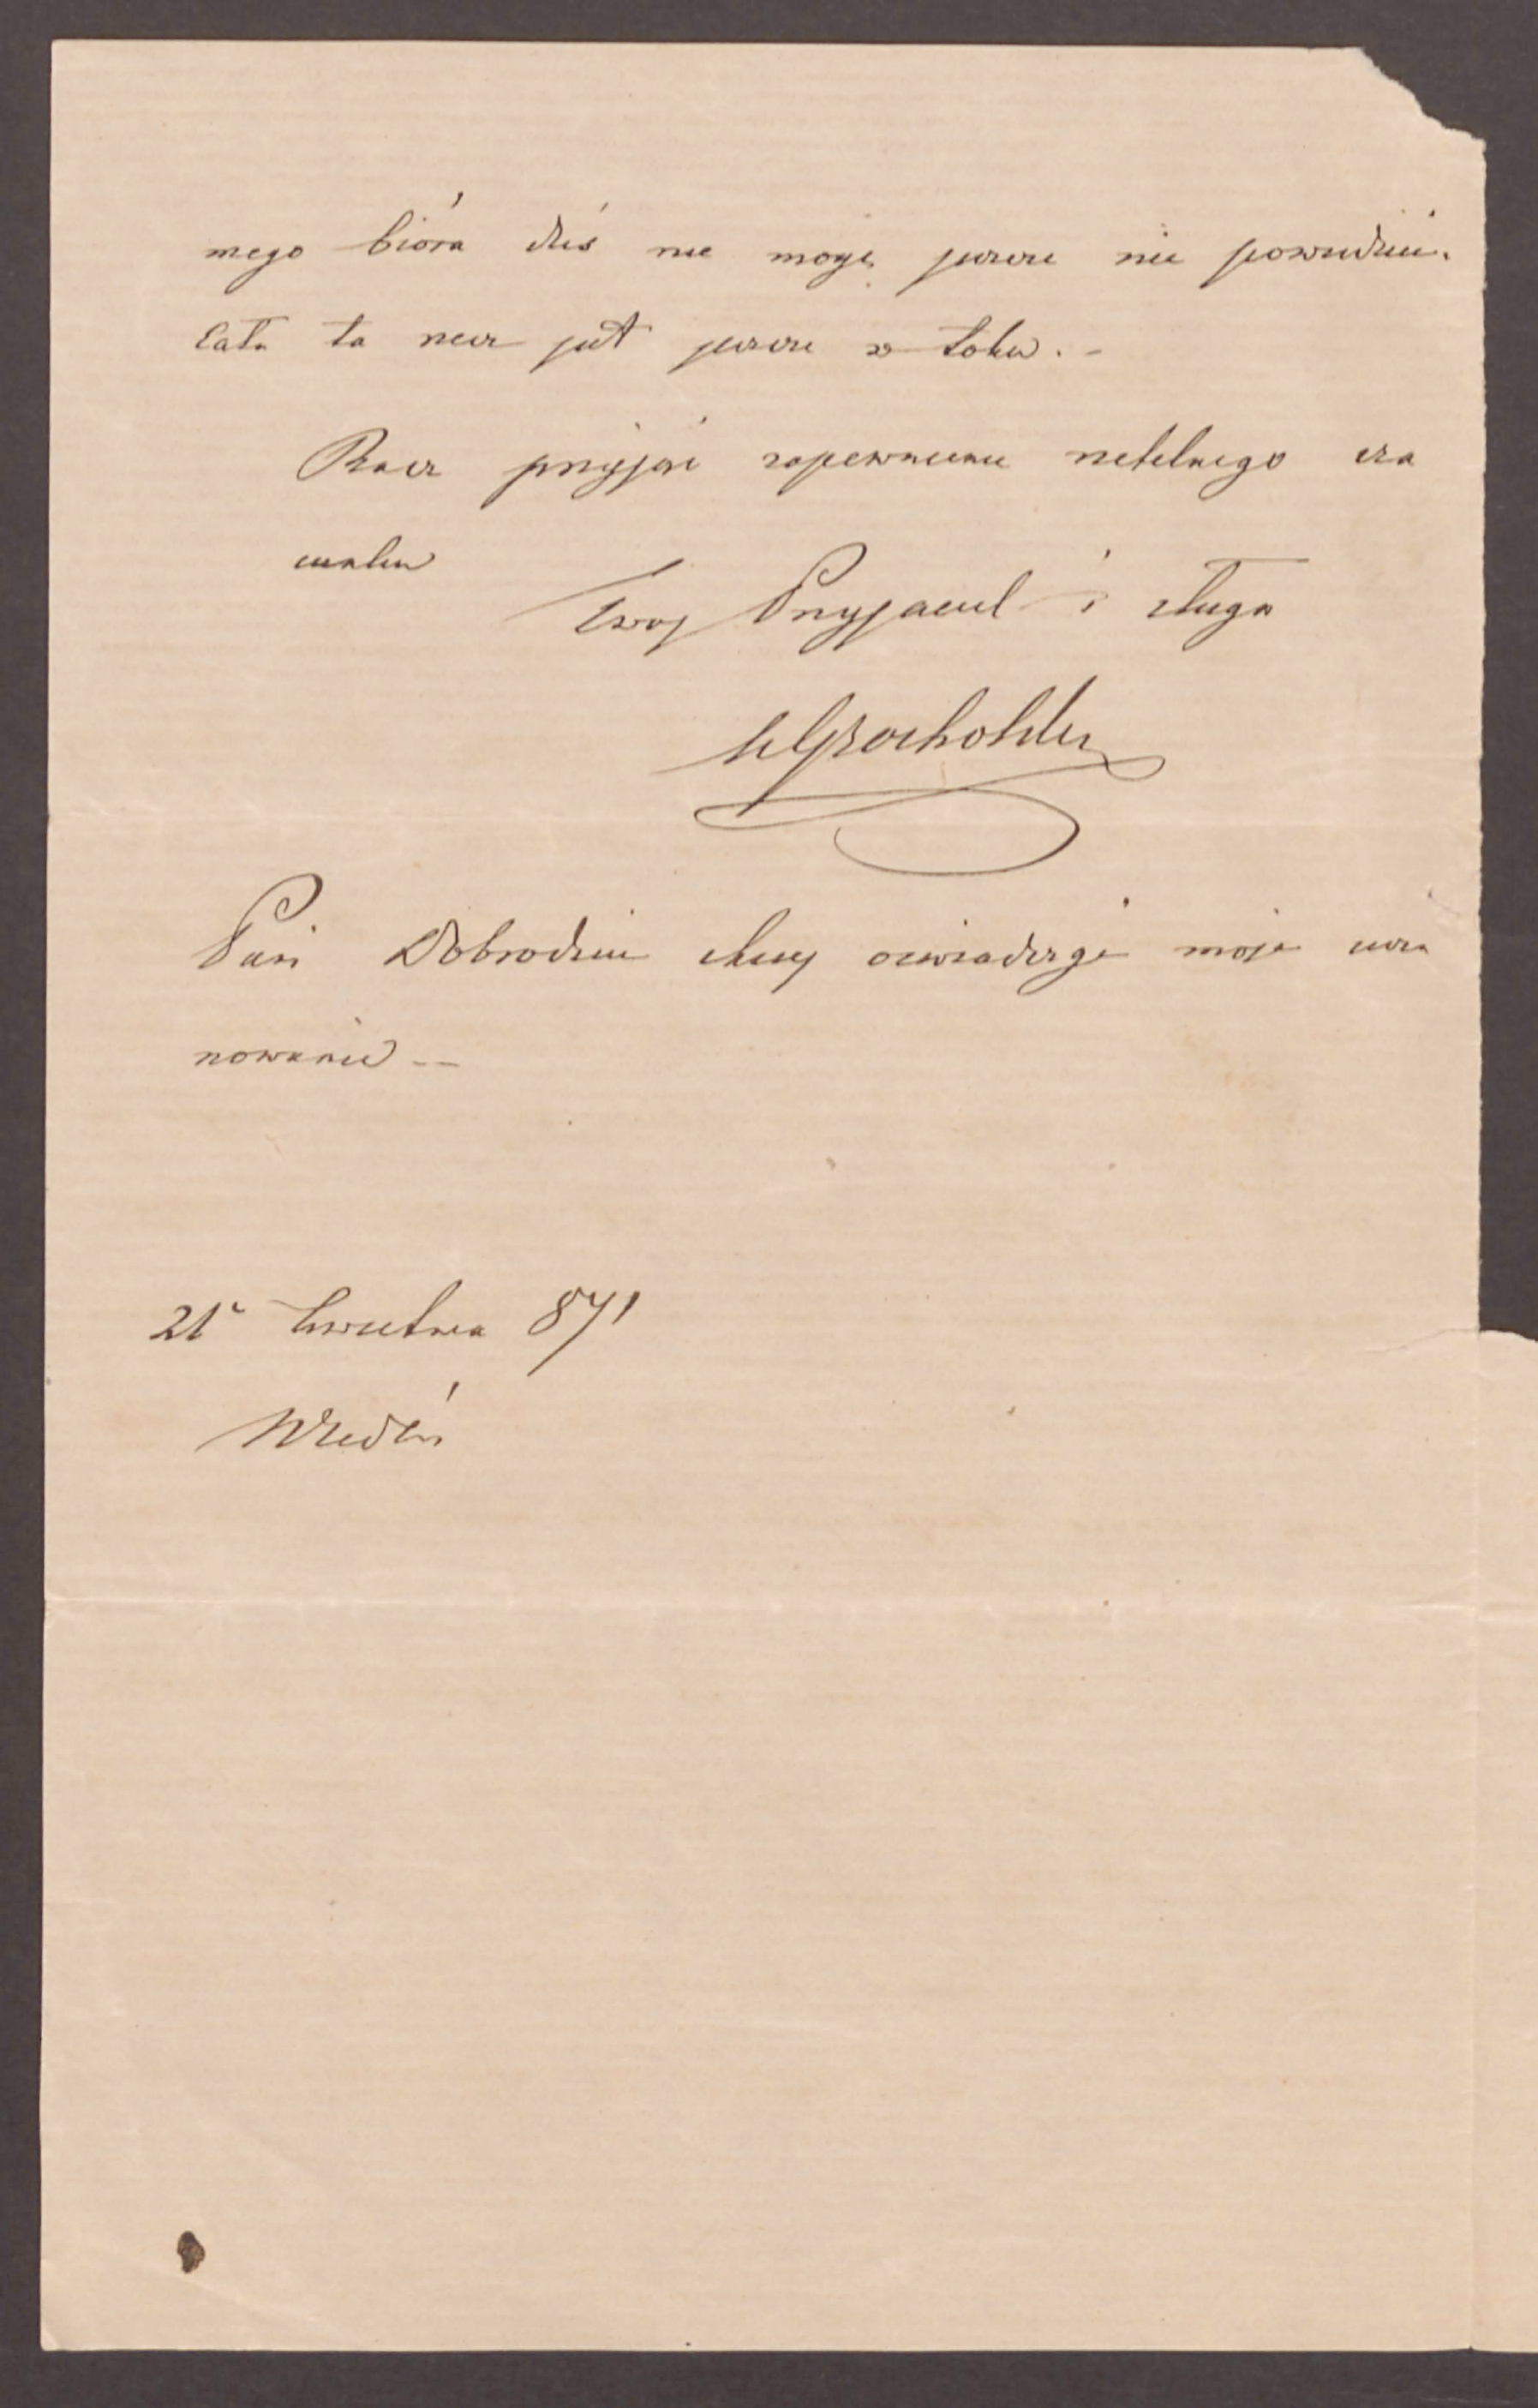 mego bióra dziś nie mogę jeszcze nic powiedzieć.
Cała ta rzecz jest jeszcze w toku. -
Racz przyjąć zapewnienie rzetelnego sza
cunku
Twoj Przyjaciel i sługa
Grocholski
Pani Dobrodziei chciej oswiadczyć moje usza
nowanie --
25 Kwietnia 871
Wiedeń